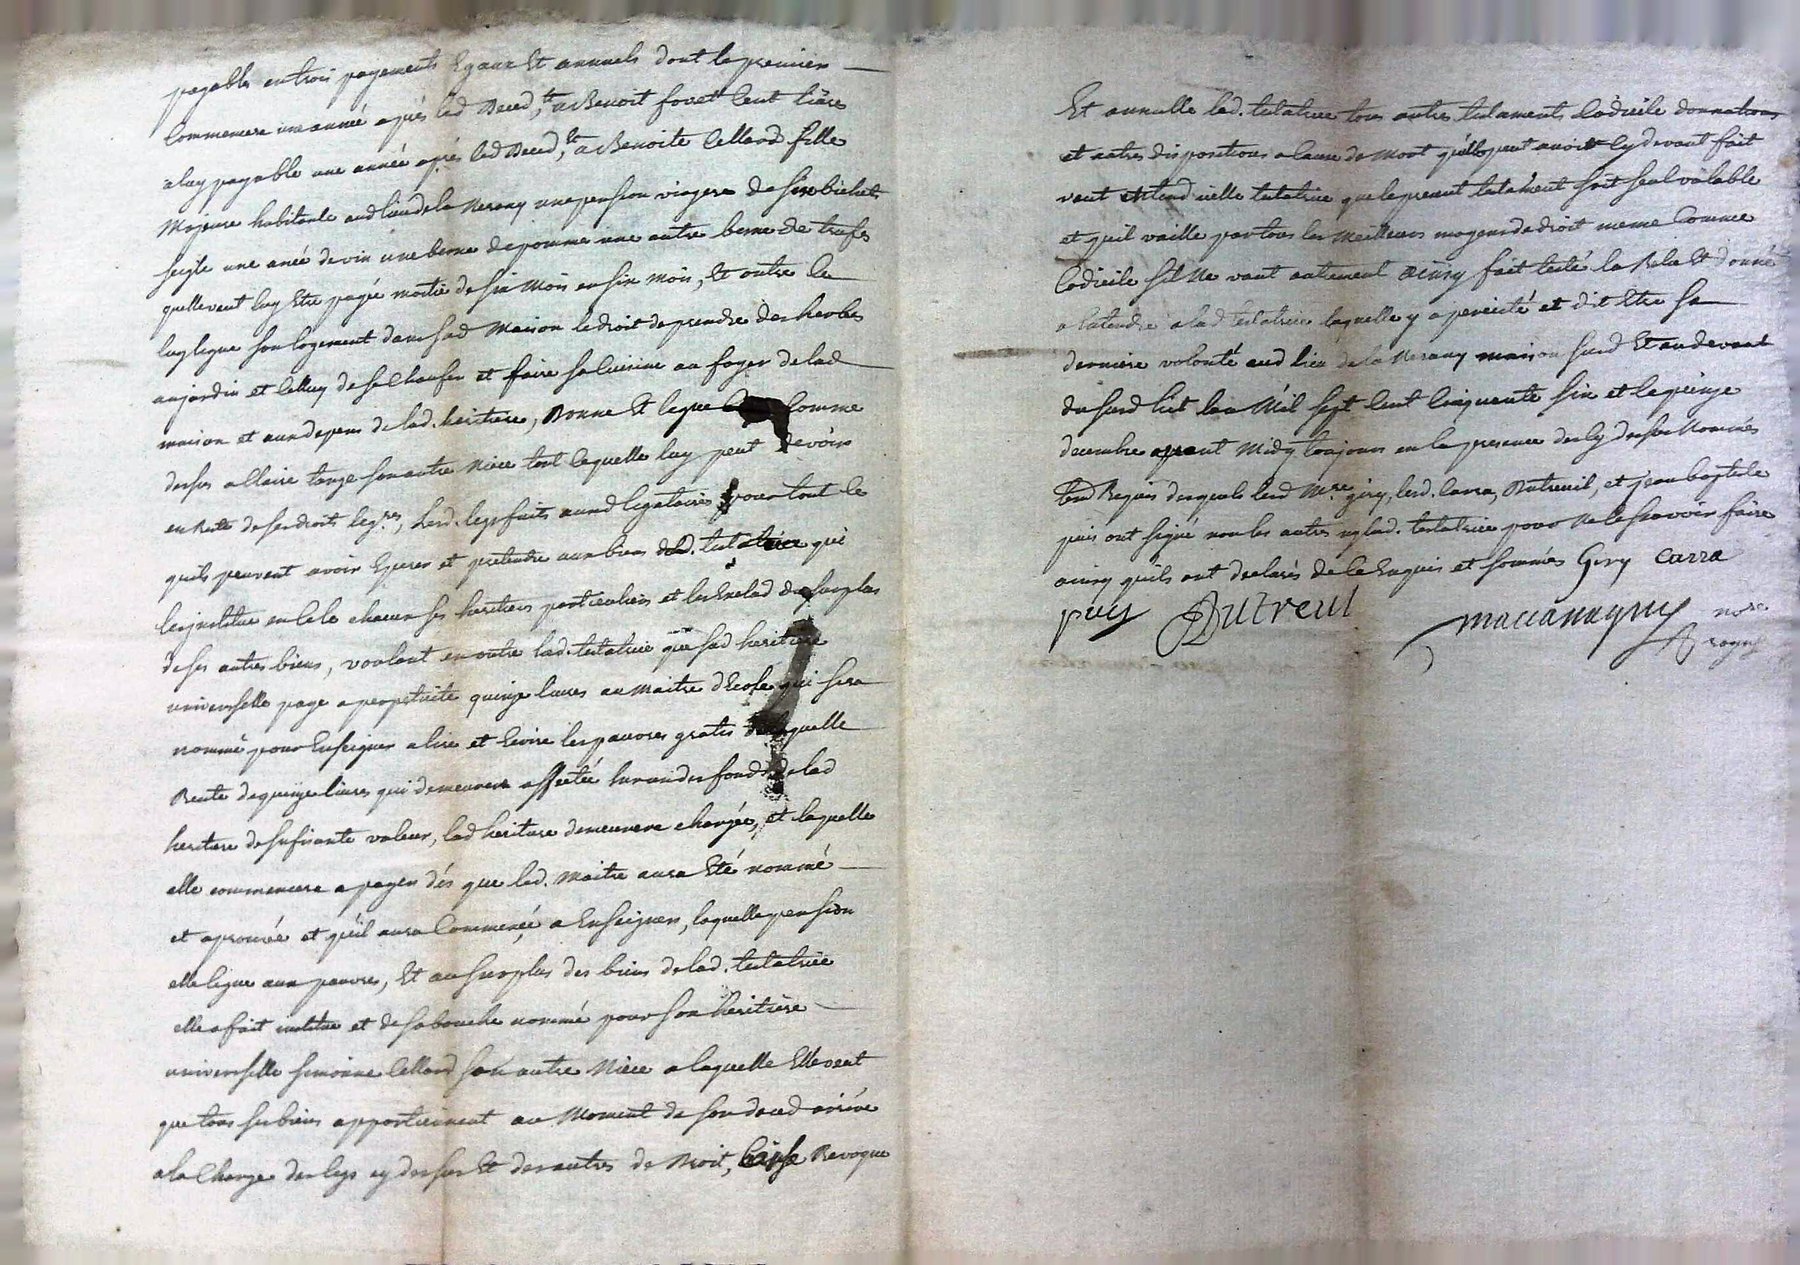 payable en trois payements Egaux Et annuels dont le premier
Commencera une année après led Deced, Et a Benoit fouet Cent livres
a luy payable une année après led Deced, Et a Benoite Cellard fille
Majeure habitante aud lieu de la Nerany une pension viagere de six bichets
seigle une anée de vin une benne de pommes une autre benne de trufes
quelle veut luy Etre payée moitié de six Mois en six mois, Et outre ce
luy legue son logement dans sad Maison le droit de prendre des herbes
au jardin et Celluy de se Chaufer et faire sa Cuisine au foyer de lad
maison et aux depens de lad. heritiere, Donne Et legue Comme
dessus a Claire son autre Niece tout ce quelle luy peut devoir
en Reste de ses droits leg.res, Lesd. legs faits auxd legataires pour tout ce
quils peuvent avoir Esperer et pretendre aux biens de lad. testatrice qui
les institue en Cela chacun ses heritiers particuliers et les Exclud du surplus
de ses autres biens, voulant en outre lad. testatrice que sad heritiere
universelle paye a perpetuité quinze livres au Maitre d'Ecole qui sera
nommé pour Enseigner a lire et Ecrire les pauvres gratis de laquelle
Rente de quinze livres qui demeurera affectée sur un des fonds de lad
heritiere de sufisante valeur, lad heritiere demeurera chargée, et laquelle
elle commencera a payer dés que led. Maitre aura Eté nommé
et aprouvé et qu'il aura Commencé a Enseigner, laquelle pension
elle legue aux pauvres, Et au surplus des biens de lad. testatrice
elle a fait institue et de sa bouche nommé pour son heritière
universelle simonne Cellard son autre Niece a laquelle Elle veut
que tous ses biens appartiennent au Moment de son deced arrivé
a la Charge des legs cy dessus Et des autres de Droit, Casse Revoque
Et annulle lad. testatrice tous autres testaments Codicile donnations
et autres dispositions a Cause de Mort qu'elle peut avoir Cy devant fait
veut et Entend icelle testatrice que le present testament soit seul valable
et quil vaille par tous les Meilleurs moyens de droit meme Comme
Codicile sil Ne vaut autrement ainsy fait testé leu Relu Et donné
a Entendre a lad testatrice laquelle y a persisté et dit Etre sa
derniere volonté aud lieu de la Nerany maison susd Et au devant
du susd lict l'an Mil sept Cent Cinquante six et le quinze
decembre avant Midy toujours en la presence des cy dessus Nommés
tem Requis desquels led M.re giry, lesd. Carra, Dutreuil, et jean baptiste
puis ont signé non les autres ny lad. testatrice pour Ne le sçavoir faire
ainsy quils ont declarés de Ce Enquis et sommés Giry Carra
puy Dutreul maccanagny no.re
royal